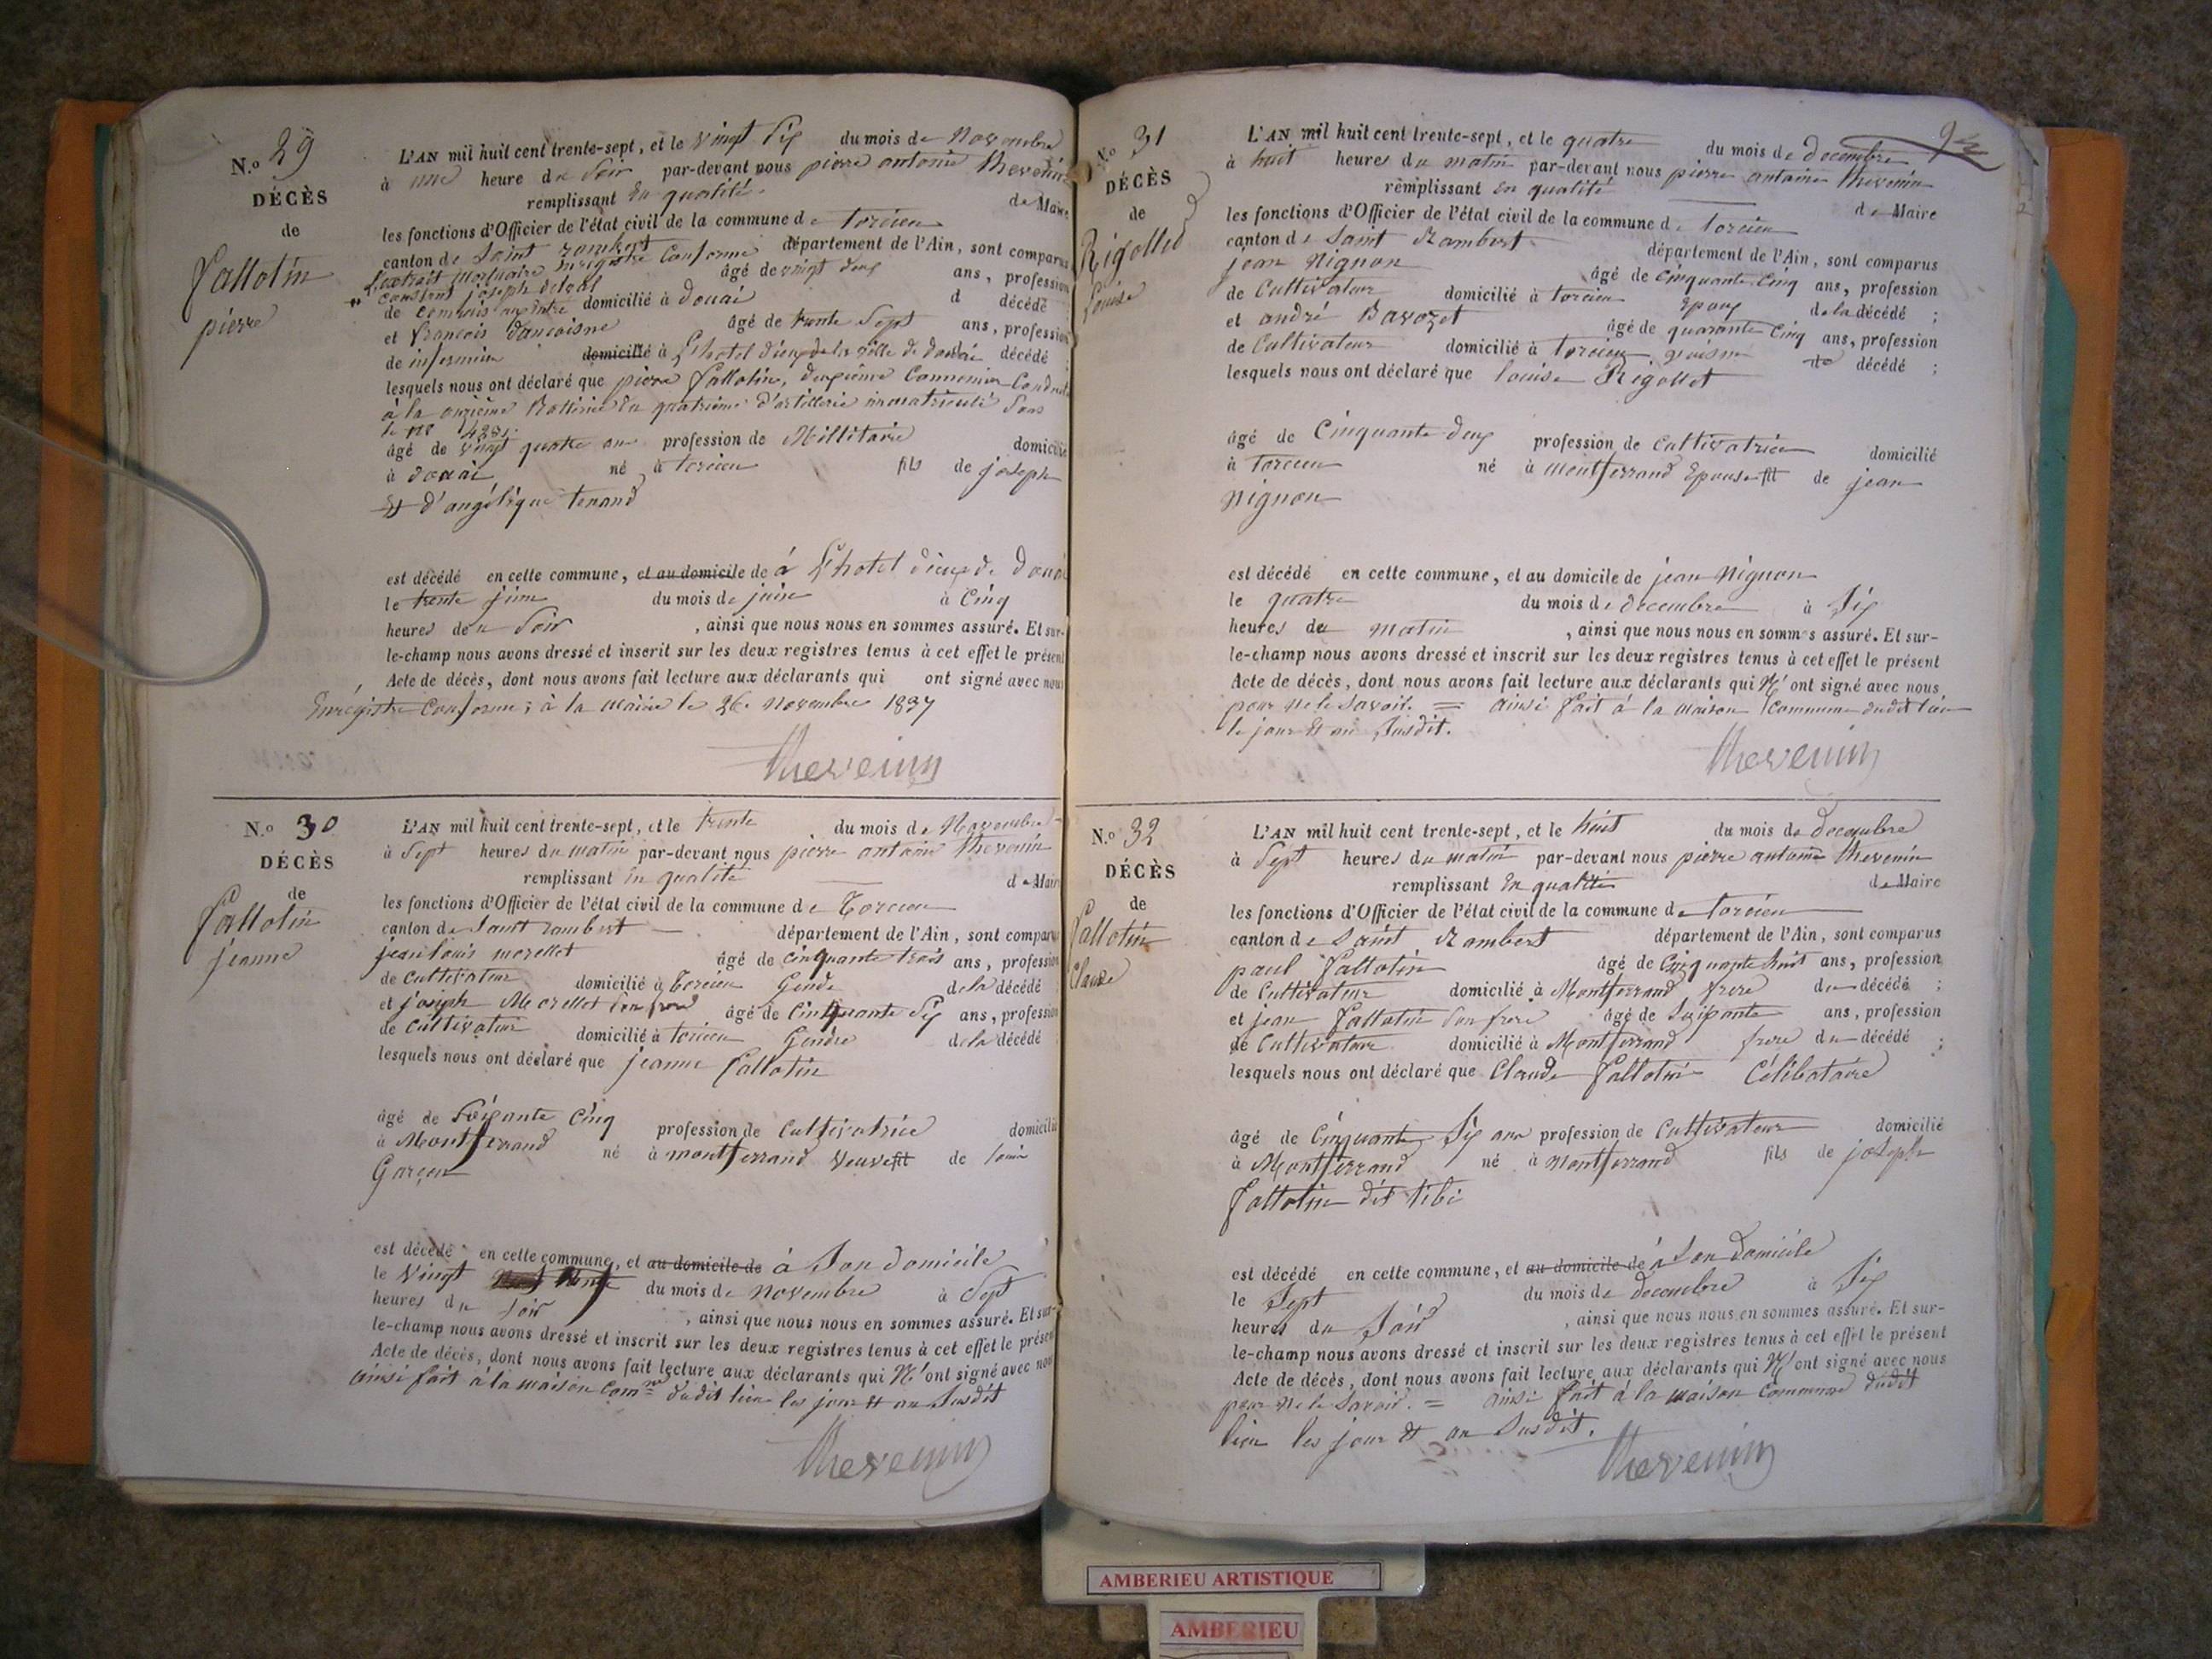 N.o 29
DÉCÈS
de
fallotin
pierre
L'AN mil huit cent trente-sept, et le vingt six du mois de Novembre
à une heure du Soir par-devant nous pierre antoine thevenin
remplissant en qualité de Maire
les fonctions d'Officier de l'état civil de la commune de torcieu
canton de Saint rambert département de l'Ain, sont comparus
L'extrait mortuaire Enregistré Conforme
constant joseph âgé de vingt deux ans, profession
de commis domicilié à douai d décédé
et françois âgé de trente Sept ans, profession
de infirmier domicilié à L'hotel dieu de la ville de douai décédé
lesquels nous ont déclaré que pierre fallotin, deuxième Canonnier Conduct
à la onzième Batterie du quatrième d'artillerie immatriculé Sous
le no 4281.
âgé de vingt quatre ans profession de Millitaire domicilié
à douai né à torcieu fils de joseph
et d'angélique tenand
est décédé en cette commune, et au domicile de à L'hotel dieu de douai
le trente juin du mois de juin à Cinq
heures du Soir , ainsi que nous nous en sommes assuré. Et sur-
le-champ nous avons dressé et inscrit sur les deux registres tenus à cet effet le présent
Acte de décès, dont nous avons fait lecture aux déclarants qui ont signé avec nous
Enrégistré Conforme; à la mairie le 26 Novembre 1837
thevenin
N.o 30
DÉCÈS
de
fallotin
jeanne
L'AN mil huit cent trente-sept, et le trente du mois de Novembre
à Sept heures du matin par-devant nous pierre antoine thevenin
remplissant en qualité de Maire
les fonctions d'Officier de l'état civil de la commune de Torcieu
canton de Saint rambert département de l'Ain, sont comparus
jean louis morellet âgé de cinquante trois ans, profession
de Cultivateur domicilié à torcieu Gendre de la décédé
et joseph Morellet Son frere âgé de Cinquante Six ans, profession
de Cultivateur domicilié à torcieu Gendre de la décédé
lesquels nous ont déclaré que jeanne fallotin
âgé de Soixante Cinq profession de Cultivatrice domicilié
à Montferrand né à montferrand veuve fil de louis
Garçon
est décédé en cette commune, et au domicile de à Son domicile
le vingt du mois de novembre à Sept
heures du Soir , ainsi que nous nous en sommes assuré. Et sur-
le-champ nous avons dressé et inscrit sur les deux registres tenus à cet effet le présent
Acte de décès, dont nous avons fait lecture aux déclarants qui N' ont signé avec nous
ainsi fait à la maison Comne dudit lieu les jour et an Susdit
thevenin
92
N.o 31
DÉCÈS
de
Rigollet
Louise
L'AN mil huit cent trente-sept, et le quatre du mois de decembre
à huit heures du matin par-devant nous pierre antoine thevenin
remplissant en qualité de Maire
les fonctions d'Officier de l'état civil de la commune de torcieu
canton de Saint Rambert département de l'Ain, sont comparus
jean Nignon âgé de cinquante Cinq ans, profession
de Cultivateur domicilié à torcieu Epoux de la décédé ;
et andré Bavozet âgé de quarante Cinq ans, profession
de Cultivateur domicilié à torcieu voisin de décédé ;
lesquels nous ont déclaré que louise Rigollet
âgé de Cinquante deux profession de Cultivatrice domicilié
à torcieu né à montferrand Epouse fil de jean
Nignon
est décédé en cette commune, et au domicile de jean Nignon
le quatre du mois de decembre à Six
heures du matin , ainsi que nous nous en sommes assuré. Et sur-
le-champ nous avons dressé et inscrit sur les deux registres tenus à cet effet le présent
Acte de décès, dont nous avons fait lecture aux déclarants qui N' ont signé avec nous
pour ne le savoir. = ainsi fait à la maison Commune dudit lieu
le jour et an Susdit.
thevenin
N.o 32
DÉCÈS
de
fallotin
Claude
L'AN mil huit cent trente-sept, et le huit du mois de decembre
à Sept heures du matin par-devant nous pierre antoine thevenin
remplissant en qualité de Maire
les fonctions d'Officier de l'état civil de la commune de torcieu
canton de saint Rambert département de l'Ain, sont comparus
paul fallotin âgé de Cinquante huit ans, profession
de Cultivateur domicilié à Montferrand frere du décédé ;
et jean fallotin Son frere âgé de Soixante ans, profession
de Cultivateur domicilié à Montferrand frere du décédé ;
lesquels nous ont déclaré que Claude fallotin Célibataire
âgé de Cinquante Six ans profession de Cultivateur domicilié
à Montferrand né à montferrand fils de joseph
fallotin dit tibi
est décédé en cette commune, et au domicile de à Son domicile
le Sept du mois de decembre à Six
heures du Soir , ainsi que nous nous en sommes assuré. Et sur-
le-champ nous avons dressé et inscrit sur les deux registres tenus à cet effet le présent
Acte de décès, dont nous avons fait lecture aux déclarants qui N' ont signé avec nous
pour ne le Savoir. = ainsi fait à la maison Commune dudit
lieu les jour et an Susdit.
thevenin
AMBERIEU ARTISTIQUE
AMBERIEU